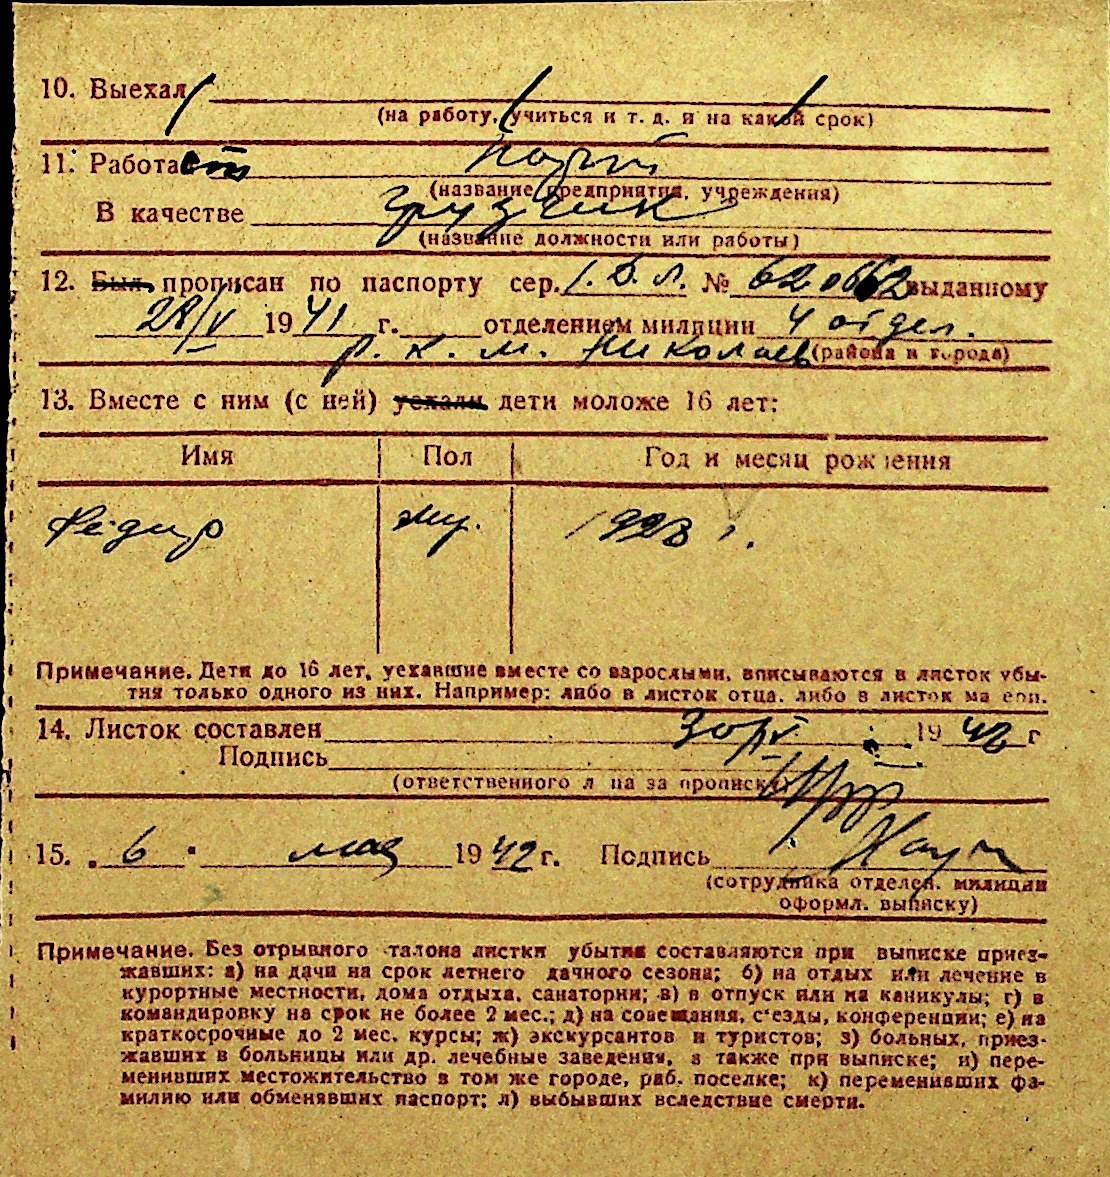 10. Выехал
(на работу, учиться и т. д. и на какой срок)
11. Работает
(название предприятия, учреждения)
В качестве грузчик
(название должности или работы)
12. Был прописан по паспорту сер. № выданному
28/V 1941 г. отделением милиции 4 отдел.
р. к. м. Николаев (района и города)
13. Вместе с ним (с ней) уехали дети моложе 16 лет:
Имя Пол Год и месяц рождения
му. 1928 г.
Примечание. Дети до 16 лет, уехавшие вместе со взрослыми, вписываются в листок убы-
тия только одного из них. Например: либо в листок отца, либо в листок матери.
14. Листок составлен 1942 г
Подпись
(ответственного лица за прописку)
15. „6" мая 1942 г. Подпись
(сотрудника отделен. милиции
оформл. выписку)
Примечание. Без отрывного талона листки убытия составляются при выписке приез-
жавших: а) на дачи на срок летнего дачного сезона; б) на отдых или лечение в
курортные местности, дома отдыха, санатории; в) в отпуск или на каникулы; г) в
командировку на срок не более 2 мес.; д) на совещания, с'езды, конференции; е) на
краткосрочные до 2 мес. курсы; ж) экскурсантов и туристов; з) больных, приез-
жавших в больницы или др. лечебные заведения, а также при выписке; и) пере-
менивших местожительство в том же городе, раб. поселке; к) переменивших фа-
милию или обменявших паспорт; л) выбывших вследствие смерти.